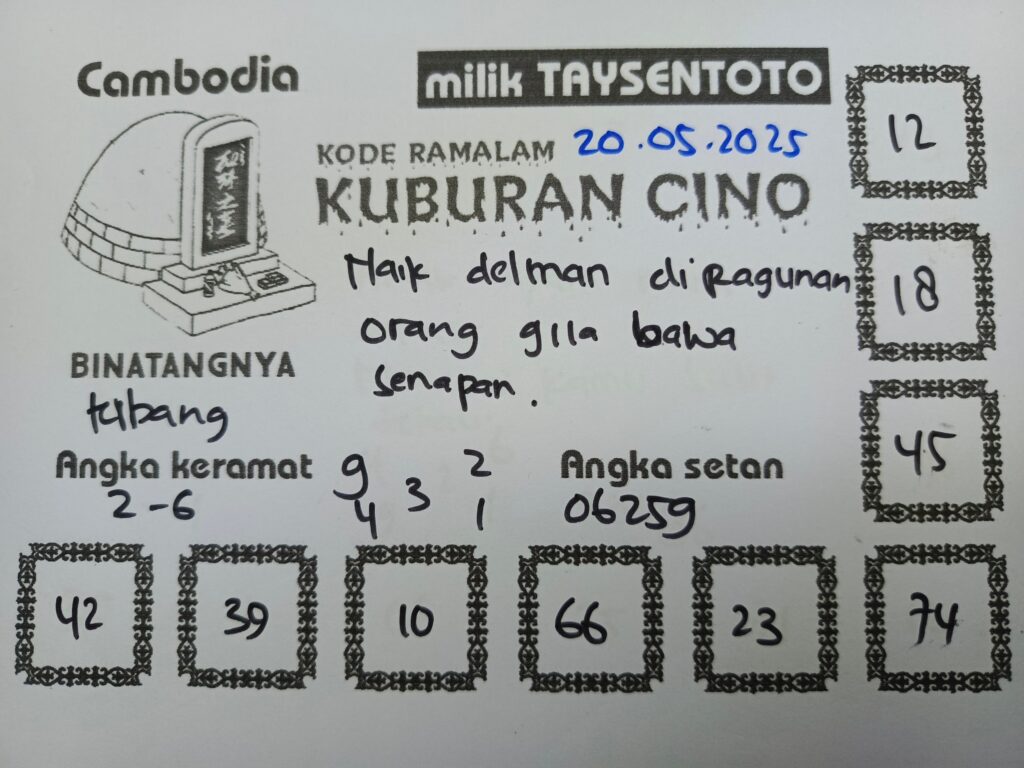 Cambodia
milik TAYSENTOTO
KODE RAMALAM 20.05.2025
KUBURAN CINO
Naik delman di Ragunan
orang gila bawa
senapan.
BINATANGNYA
Angka keramat
2-6
9 2
3
4 1
Angka setan
06259
12
18
45
42 39 10 66 23 74